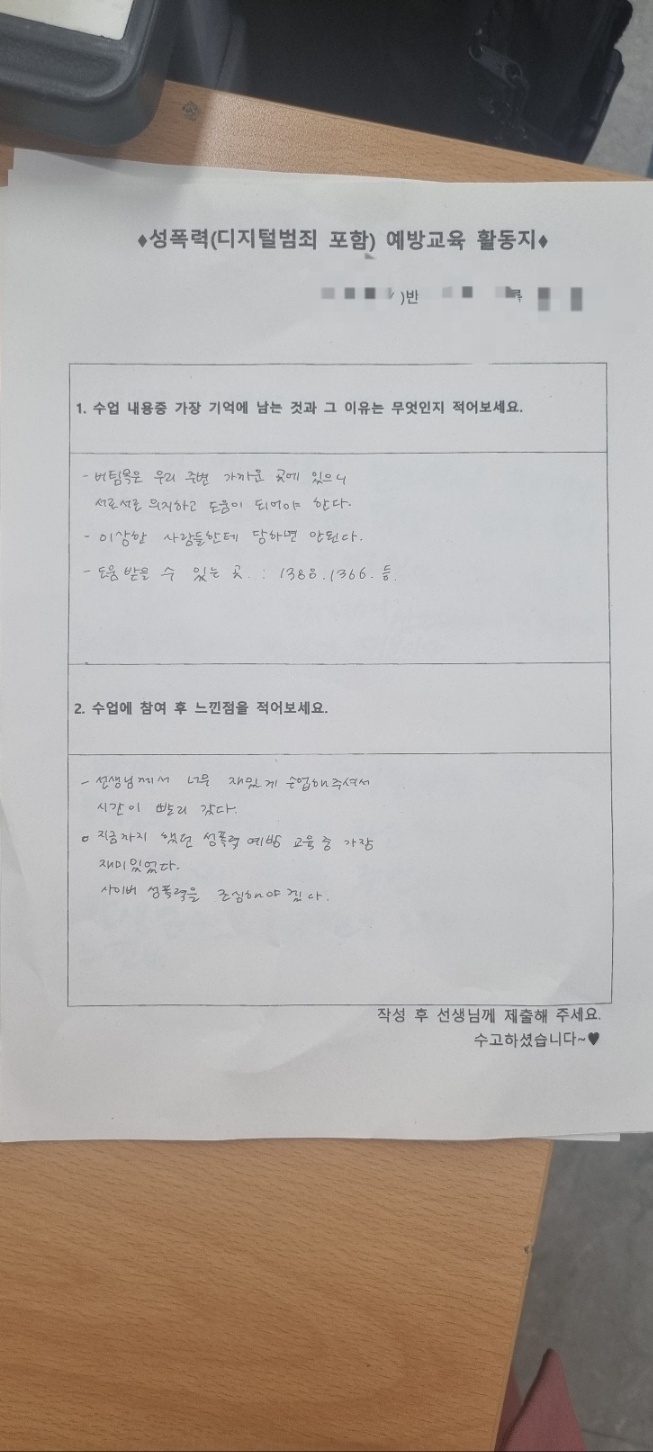 ♦성폭력(디지털범죄 포함) 예방교육 활동지♦
)반
1. 수업 내용중 가장 기억에 남는 것과 그 이유는 무엇인지 적어보세요.
- 버팀목은 우리 주변 가까운 곳에 있으니
서로서로 의지하고 도움이 되어야 한다.
- 이상한 사람들한테 당하면 안된다.
- 도움 받을 수 있는 곳. : 1388. 1366. 등.
2. 수업에 참여 후 느낀점을 적어보세요.
- 선생님께서 너무 재밌게 수업해주셔서
시간이 빨리 갔다.
지금까지 했던 성폭력 예방 교육 중 가장
재미있었다.
사이버 성폭력을 조심해야 겠다.
작성 후 선생님께 제출해 주세요.
수고하셨습니다~♥